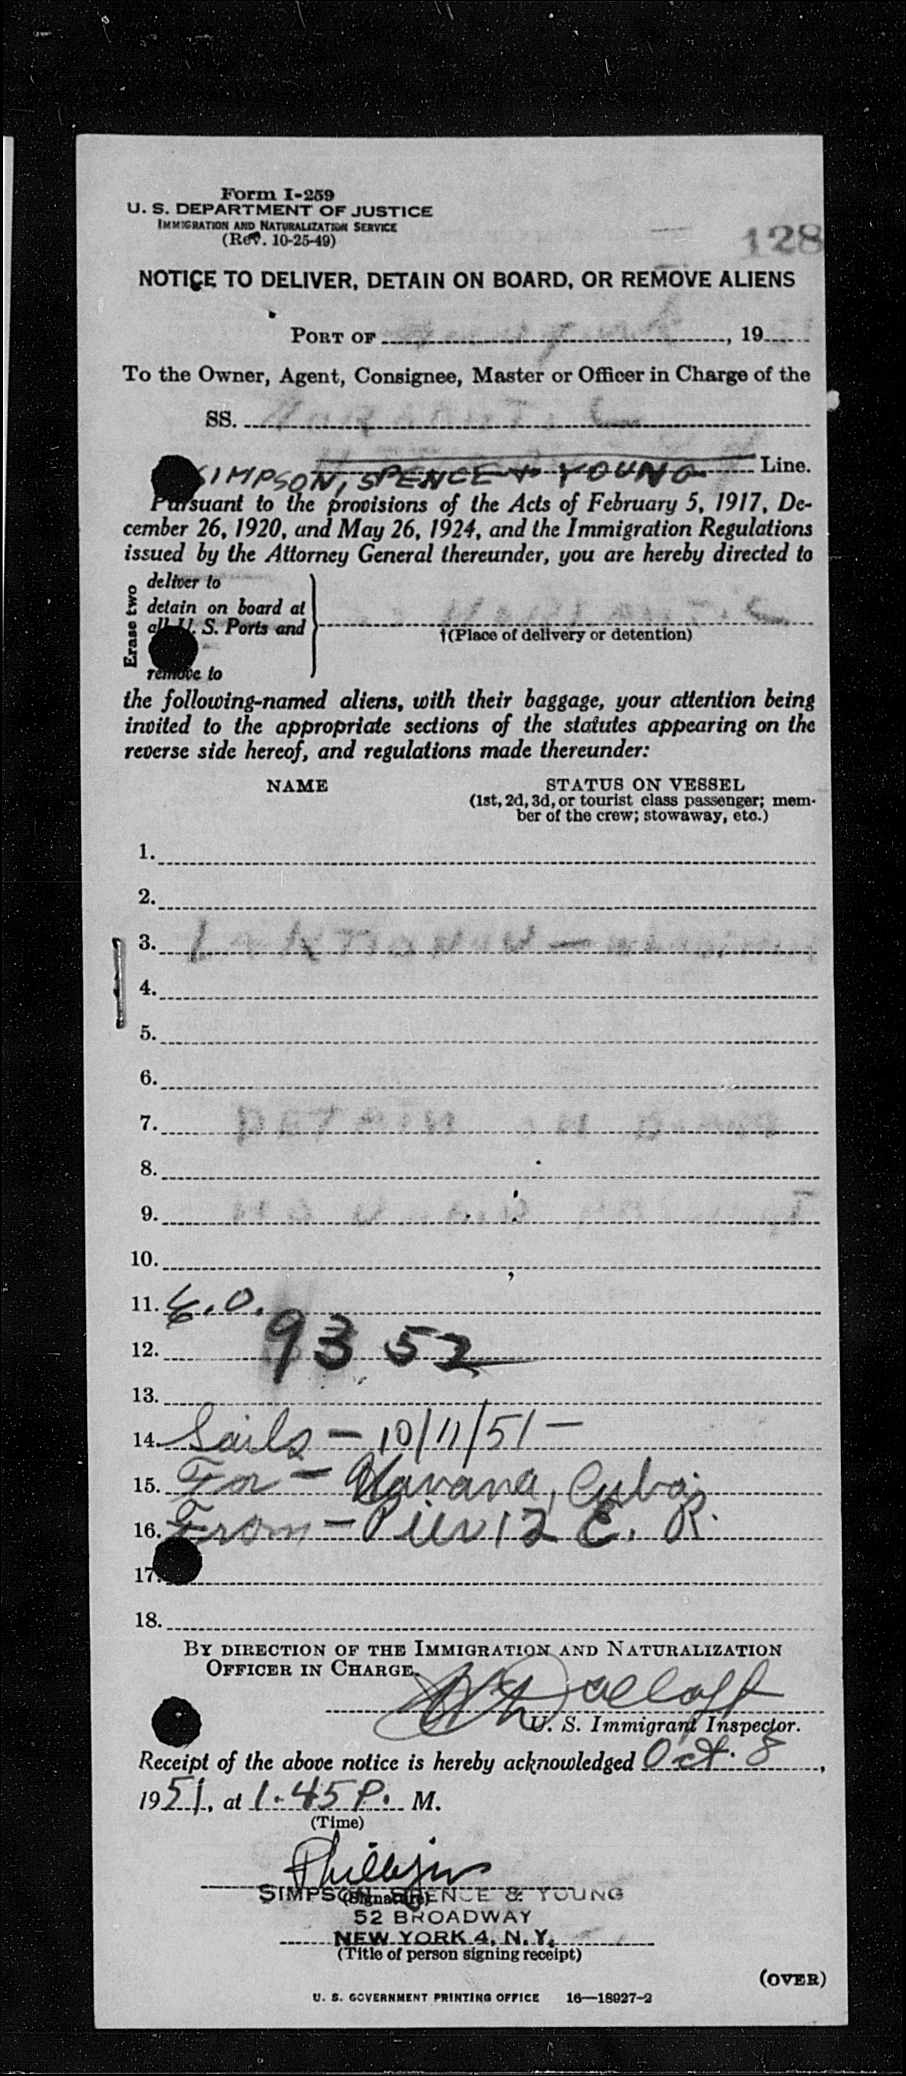 Form I-259
U. S. DEPARTMENT OF JUSTICE
IMMIGRATION AND NATURALIZATION SERVICE
(Rev. 10-25-49)
128
NOTICE TO DELIVER, DETAIN ON BOARD, OR REMOVE ALIENS
PORT OF , 19
To the Owner, Agent, Consignee, Master or Officer in Charge of the
SS.
SIMPSON, SPENCE & YOUNG Line.
Pursuant to the provisions of the Acts of February 5, 1917, De-
cember 26, 1920, and May 26, 1924, and the Immigration Regulations
issued by the Attorney General thereunder, you are hereby directed to
Erase two
deliver to
detain on board at
all U. S. Ports and
†(Place of delivery or detention)
remove to
the following-named aliens, with their baggage, your attention being
invited to the appropriate sections of the statutes appearing on the
reverse side hereof, and regulations made thereunder:
NAME STATUS ON VESSEL
(1st, 2d, 3d, or tourist class passenger; mem-
ber of the crew; stowaway, etc.)
1.
2.
3.
4.
5.
6.
7.
8.
9.
10.
11. G.O.
12. 9352
13.
14. Sails - 10/11/51 -
15. For - Havana, Cuba.
16. From - Pier 12 E. R.
17.
18.
BY DIRECTION OF THE IMMIGRATION AND NATURALIZATION
OFFICER IN CHARGE.
U. S. Immigrant Inspector.
Receipt of the above notice is hereby acknowledged Oct. 8,
1951, at 1.45 P. M.
(Time)
Phillips
SIMPSON, SPENCE & YOUNG
(Signature)
52 BROADWAY
NEW YORK 4, N. Y.
(Title of person signing receipt)
(OVER)
U. S. GOVERNMENT PRINTING OFFICE 16—18927-2